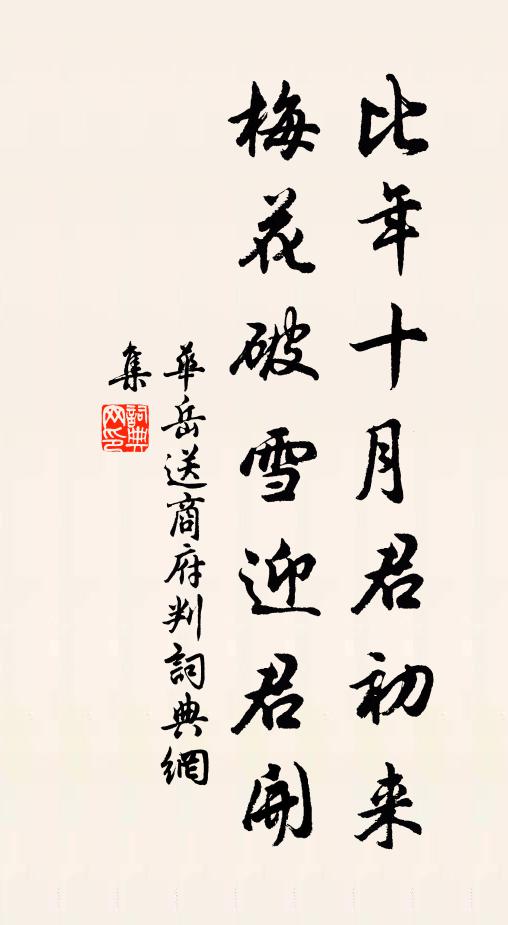 比年十月君初来
梅花破雪迎君開
華岳送商府判詞典網
集
詞典網印